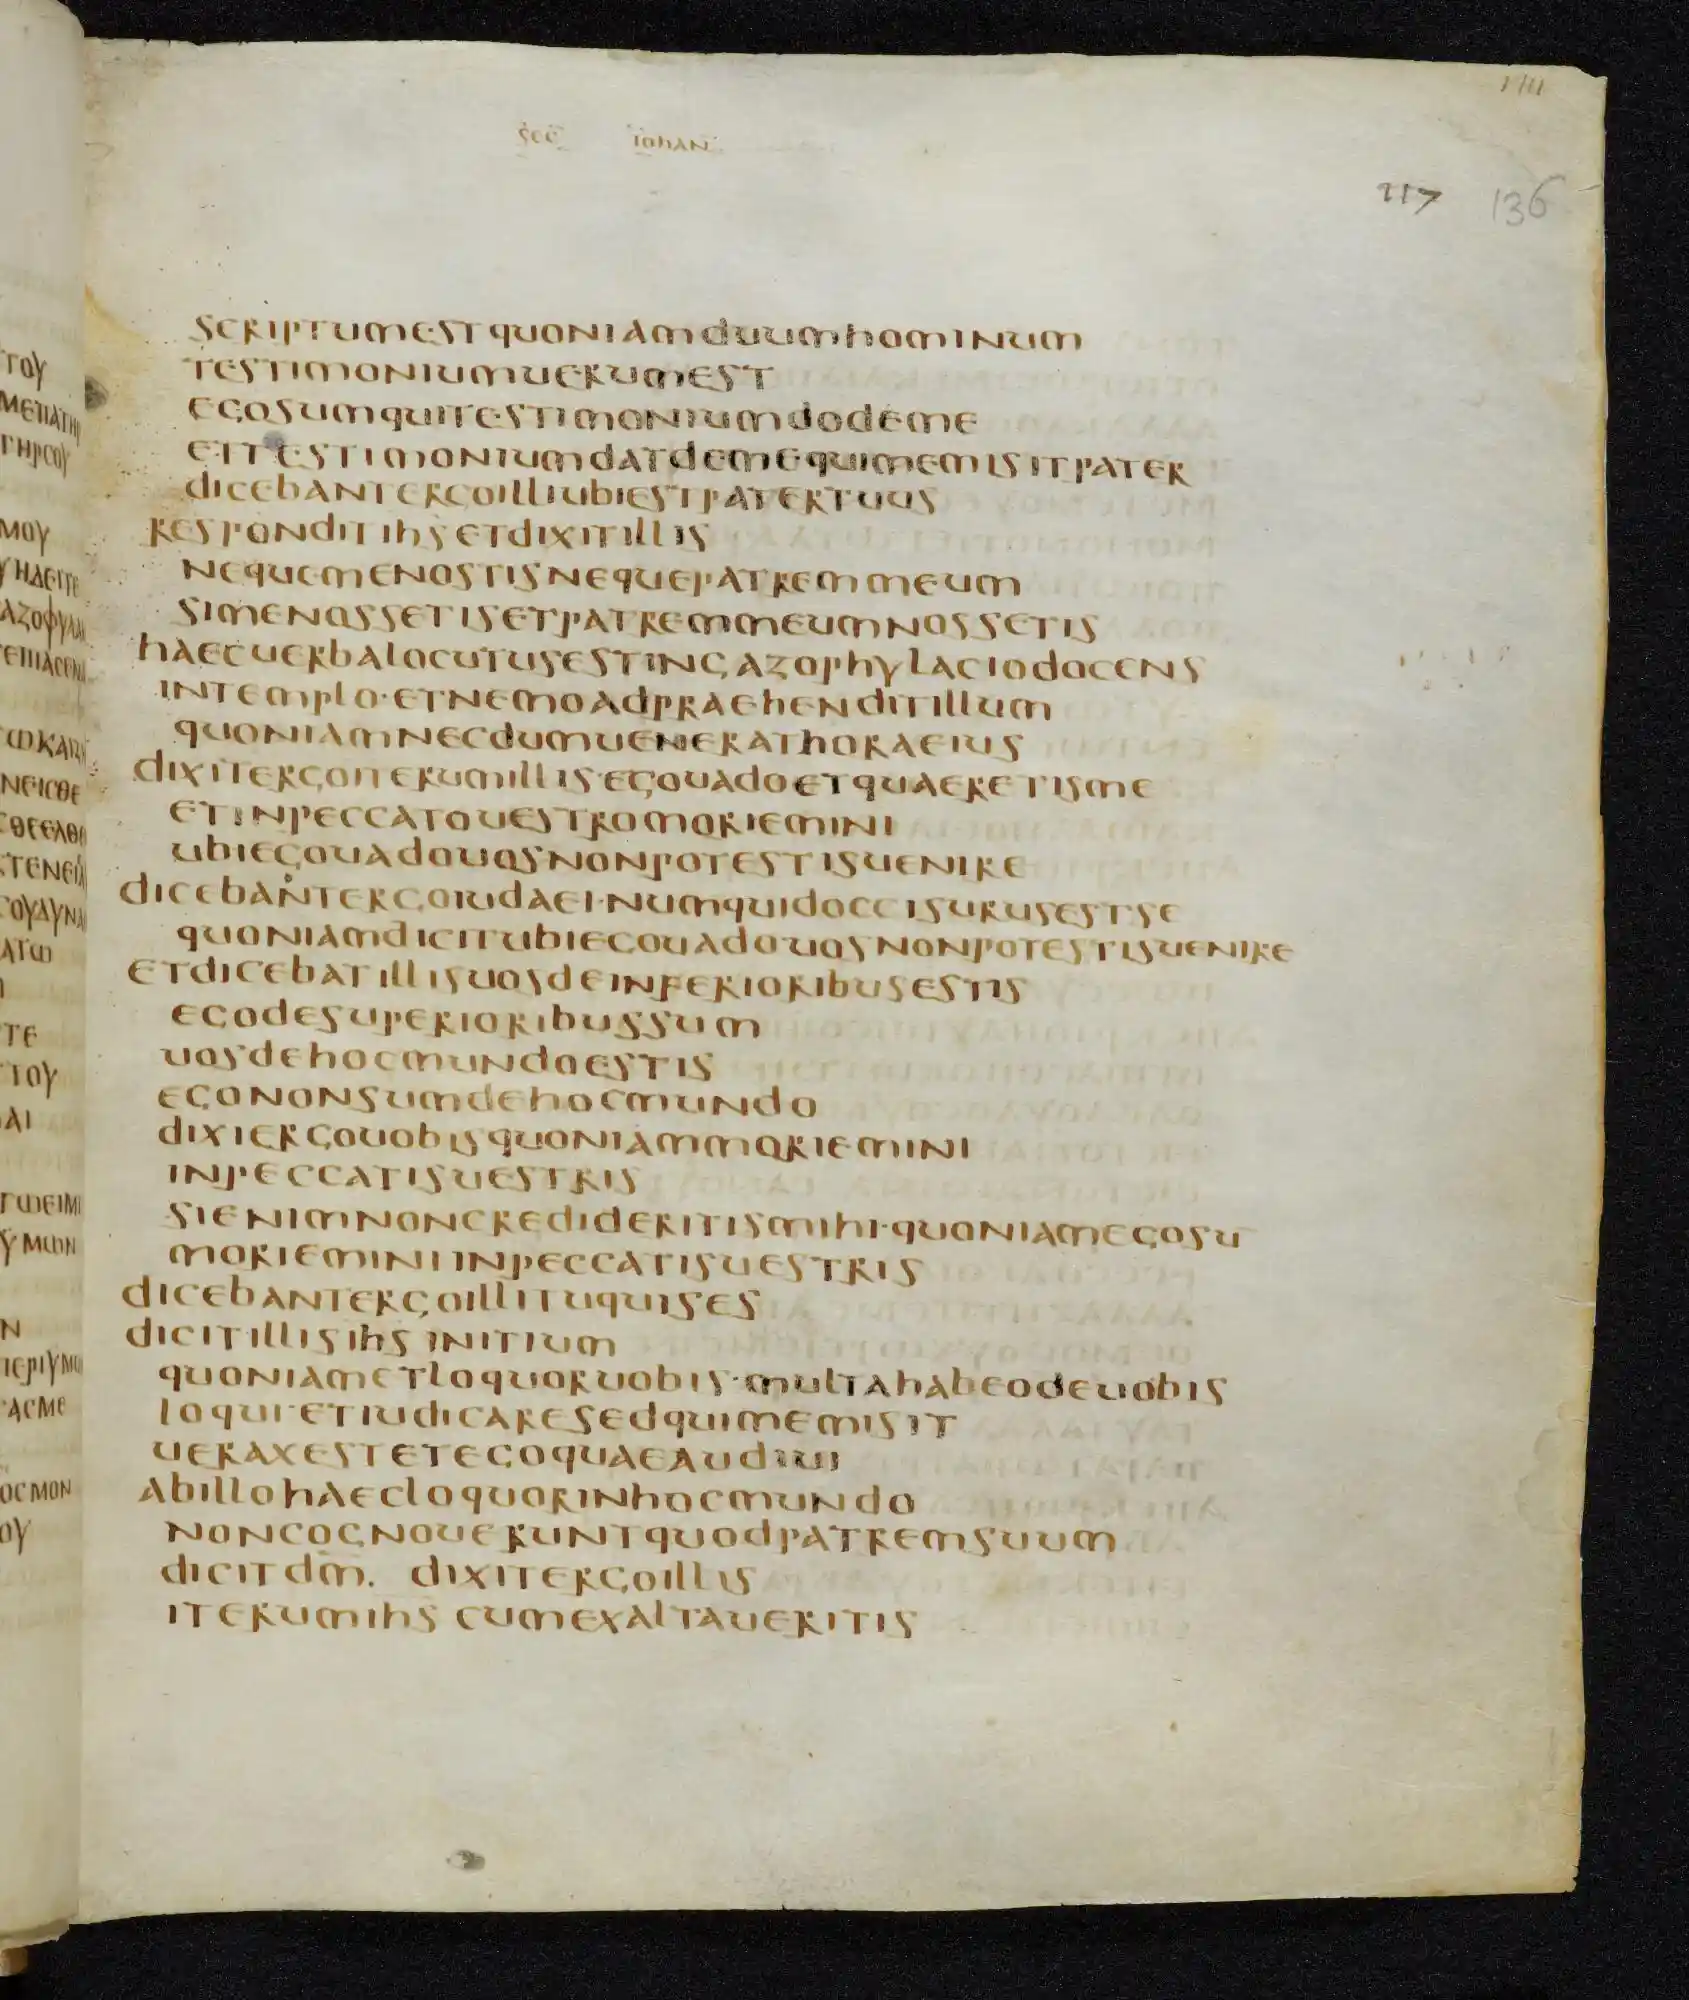 sec iohan
117 136
scriptumest quoniamduumhominum
testimoniumuerumest
egosumquitestimoniumdodeme
ettestimoniumdatdeme·quimemisitpater
dicebantergoilliubiestpatertuus
respondit ihs etdixitillis
nequemenostisnequepatremmeum
simenossetisetpatremmeumnossetis
haecuerbalocutusestingazophylaciodocens
intemplo·etnemoadpraehenditillum
quoniamnecdumuenerathoraeius
dixitergoiterumillis·egouadoetquaeretisme
etinpeccatouestromoriemini
ubiegouadouosnonpotestisuenire
dicebantergoiudaei·numquidoccisurusestse
quoniamdicitubiegouadouosnonpotestisuenire
etdicebatillisuosdeinferioribusestis
egodesuperioribussum
uosdehocmundoestis
egononsumdehocmundo
dixiergouobisquoniammoriemini
inpeccatisuestris
sienimnoncredideritismihi·quoniamegosu
morieminiinpeccatisuestris
dicebantergoillituquises
dicitillisihs initium
quoniametloquoruobis·multahabeodeuobis
loqui·etiudicaresedquimemisit
ueraxestetegoquaeaudiui
abillohaecloquorinhocmundo
noncognoueruntquodpatremsuum
dicit dm̅. dixitergoillis
iterumihs cumexaltaueritis